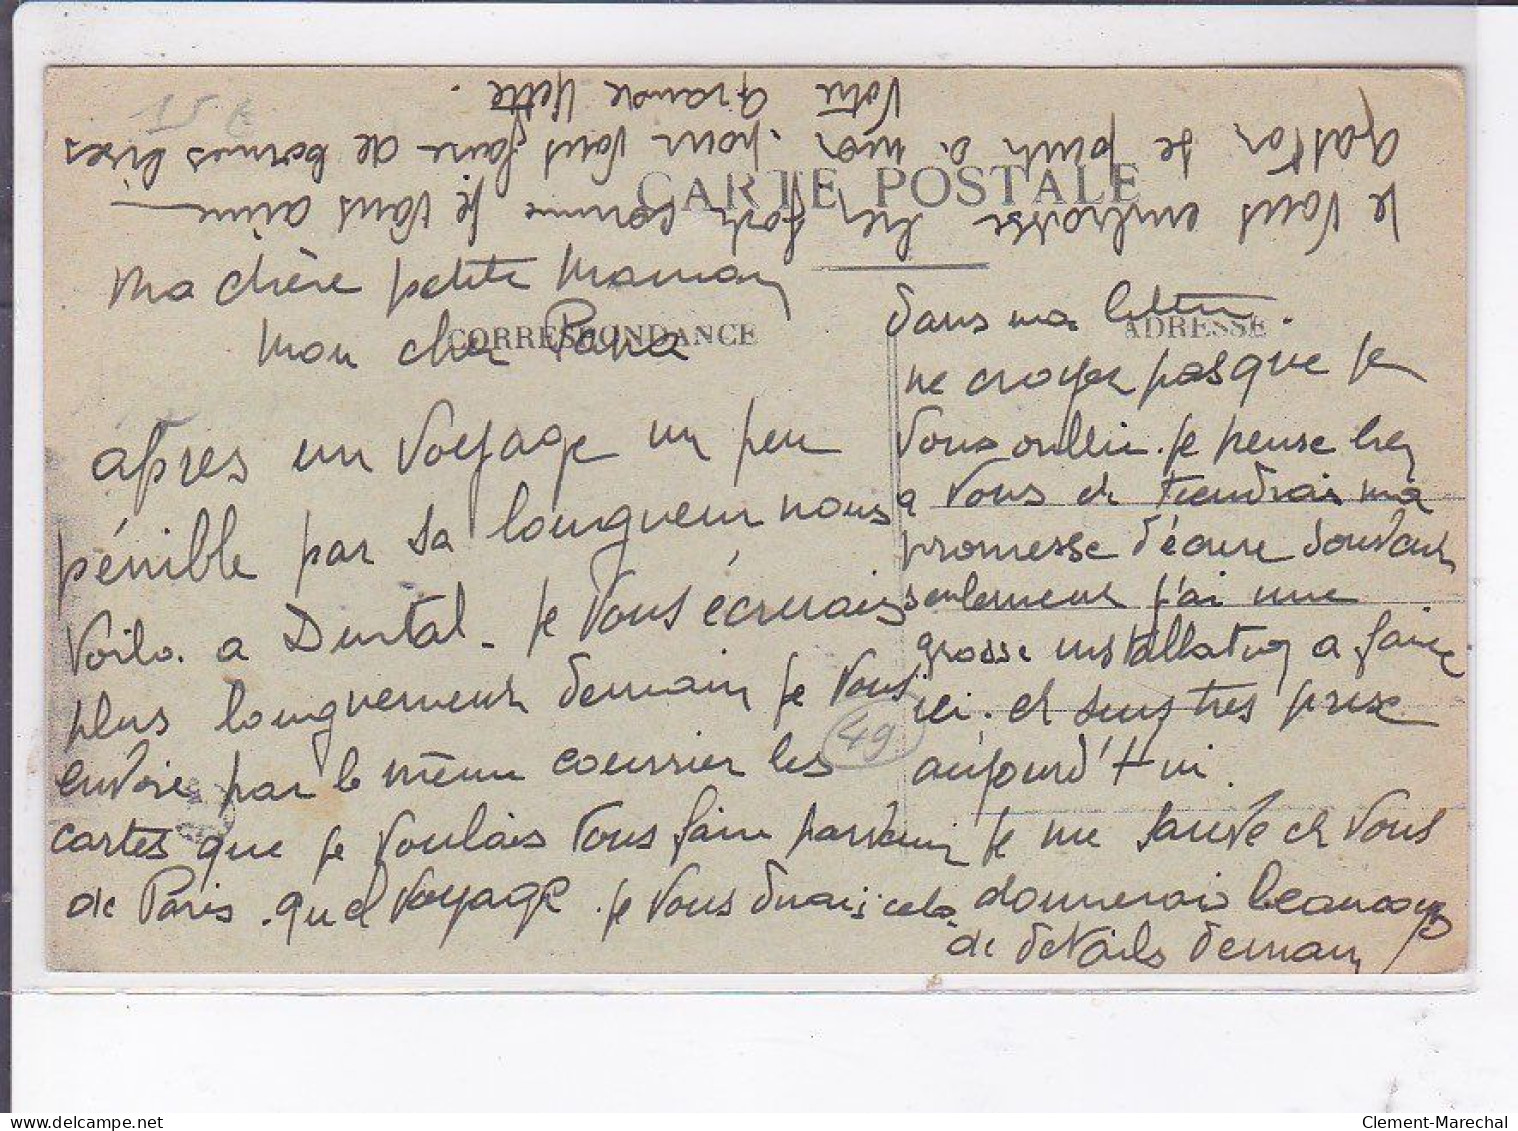 CARTE POSTALE
CORRESPONDANCE
ADRESSE
Ma chère petite Maman
Mon cher Papa
après un voyage un peu
pénible par sa longueur nous
voila a Durtal. je vous écrirais
plus longuement demain je vous
envoie par le même courrier les
cartes que je voulais vous faire parvenir
de Paris. quel voyage. je vous dirais cela
dans ma lettre.
ne croyez pas que je
vous oublie. je pense bien
a vous et tiendrais ma
promesse d'écrire souvent
seulement j'ai une
grosse installation a faire
ici. et suis très prise
aujourd'Hui.
je me sauve et vous
donnerais beaucoup
de détails demain
je vous embrasse bien fort comme je vous aime
Gaston se joint à moi pour vous faire de bonnes bises
Votre Grande Yette.
49
15 €
Clement-Marechal
www.delcampe.net